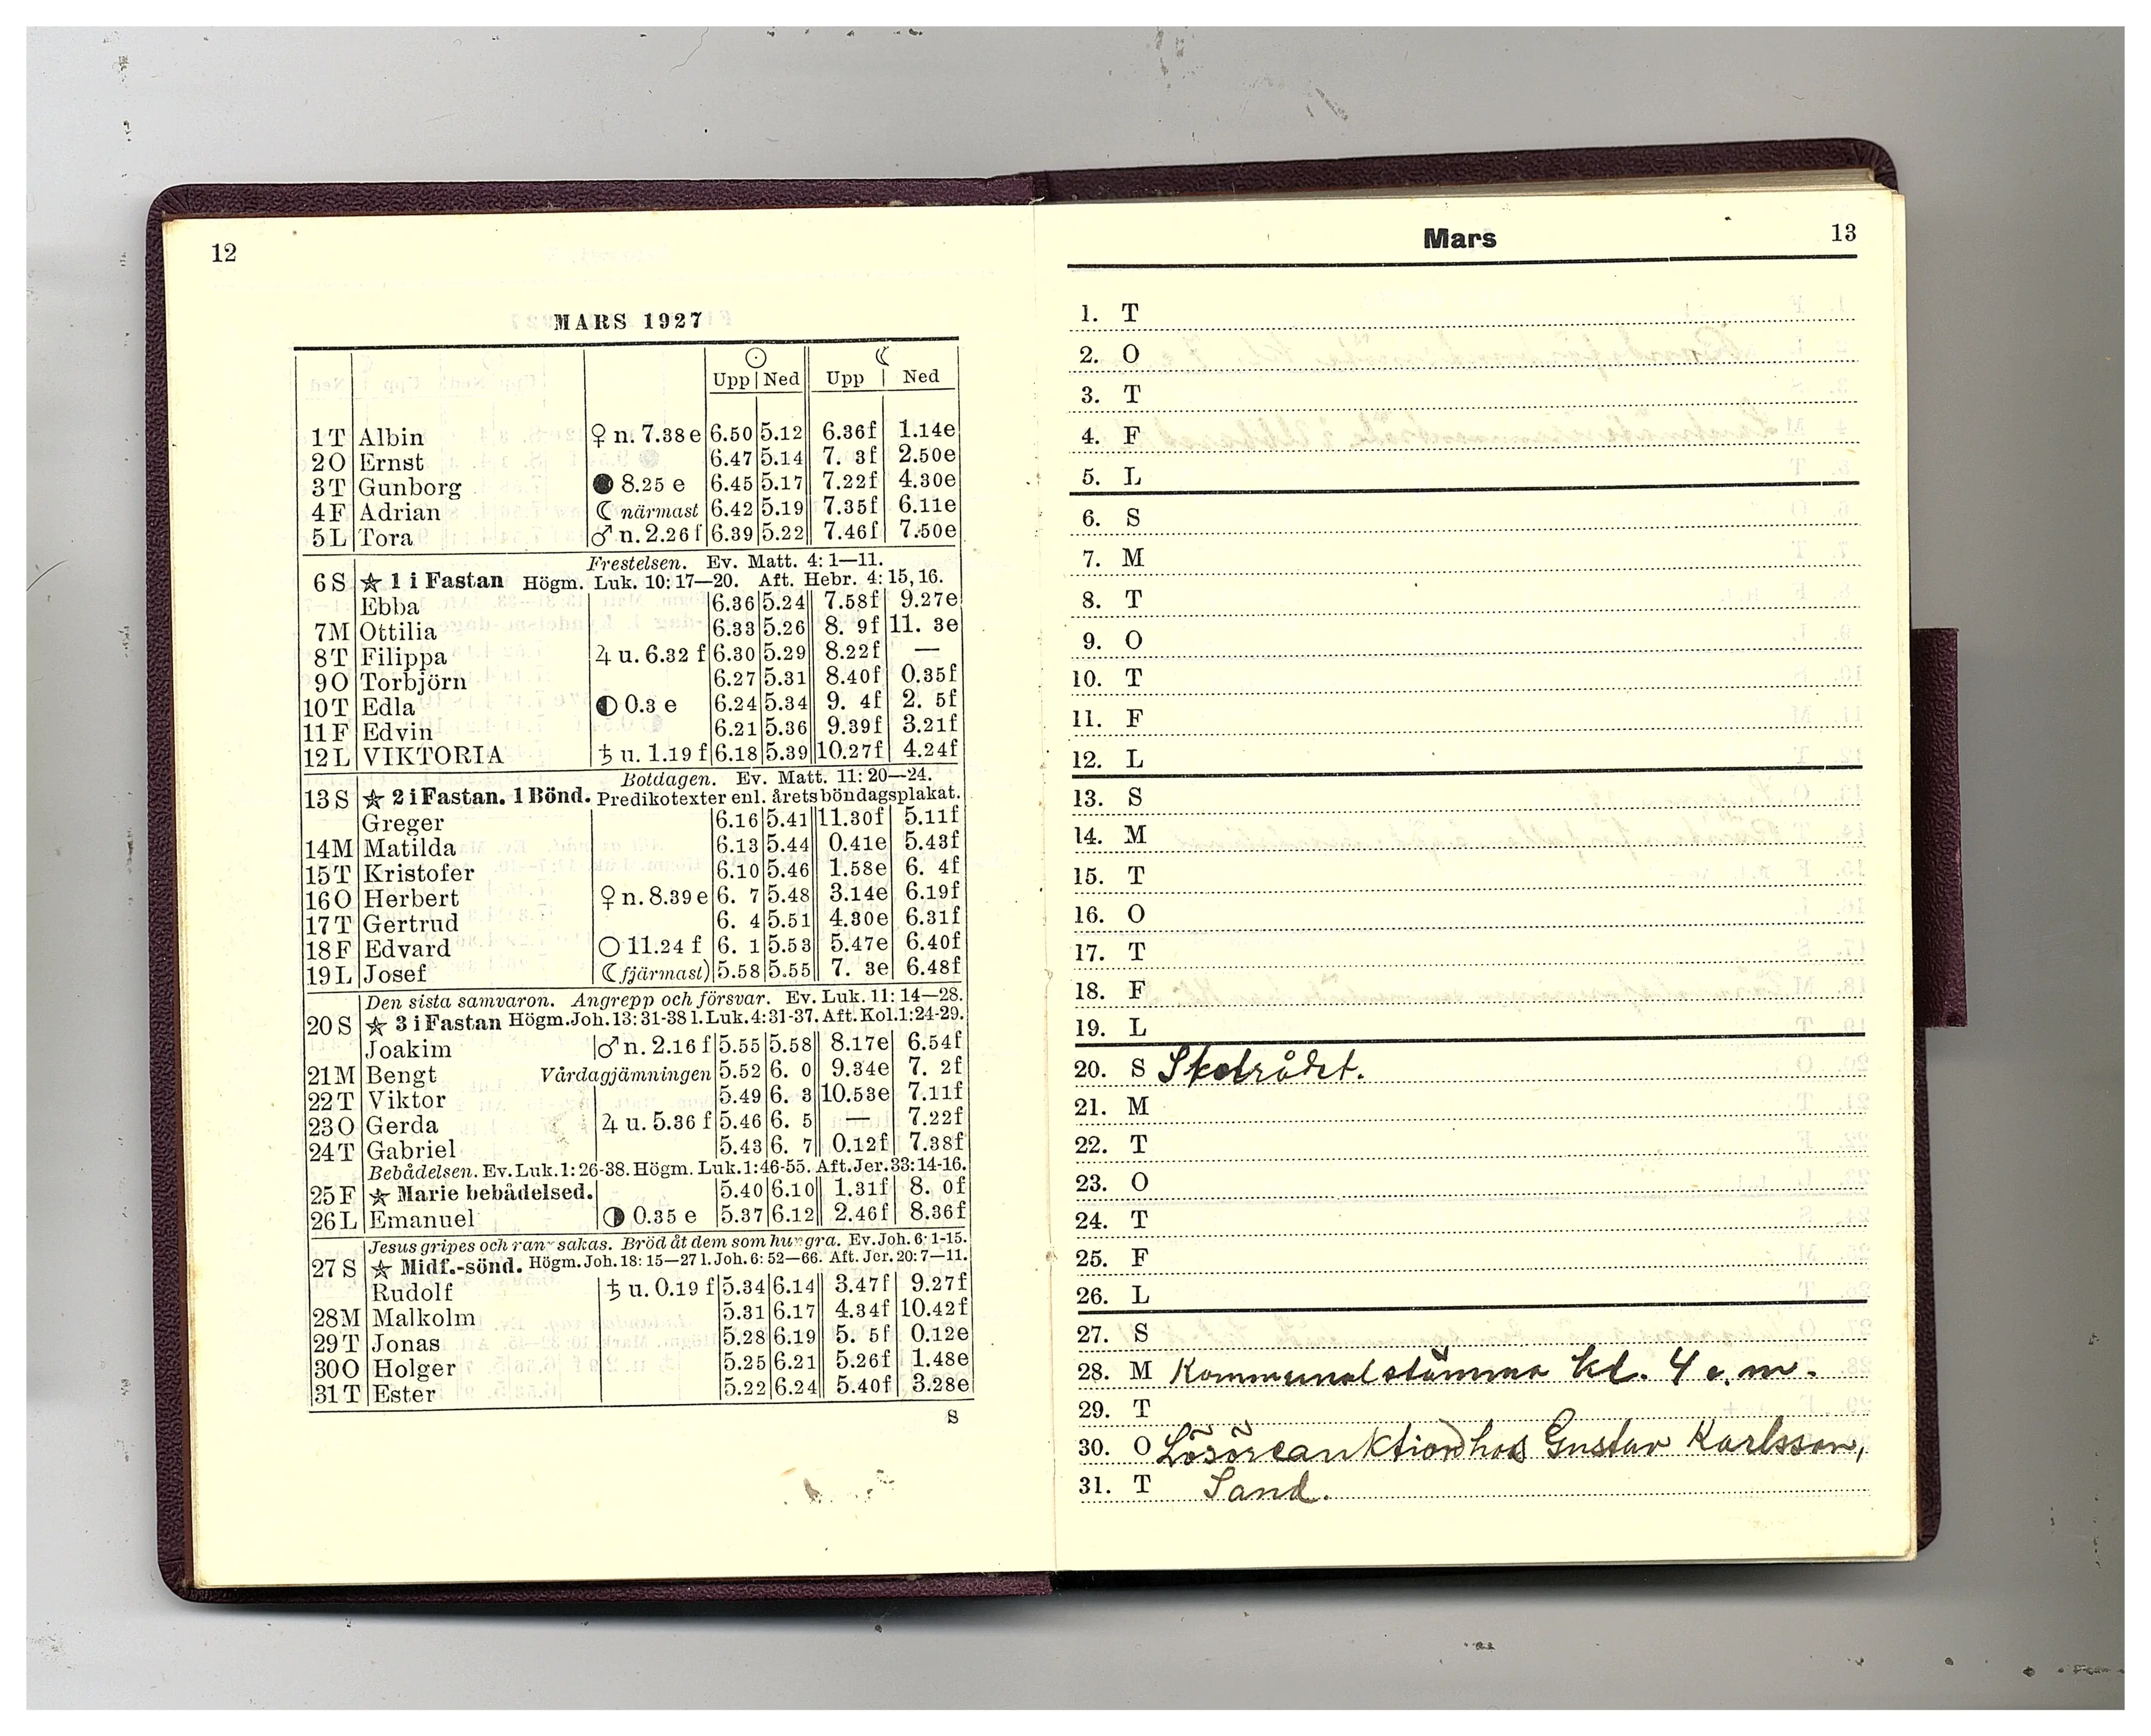 12
MARS 1927
☉ ☾
Upp Ned Upp Ned
1 T Albin ♀ n. 7.38 e 6.50 5.12 6.36f 1.14e
2 O Ernst 6.47 5.14 7. 3f 2.50e
3 T Gunborg ● 8.25 e 6.45 5.17 7.22f 4.30e
4 F Adrian ☾ närmast 6.42 5.19 7.35f 6.11e
5 L Tora ♂ n. 2.26 f 6.39 5.22 7.46f 7.50e
Frestelsen. Ev. Matt. 4: 1—11.
6 S ★ 1 i Fastan Högm. Luk. 10: 17—20. Aft. Hebr. 4: 15, 16.
Ebba 6.36 5.24 7.58f 9.27e
7 M Ottilia 6.33 5.26 8. 9f 11. 3e
8 T Filippa ♃ u. 6.32 f 6.30 5.29 8.22f —
9 O Torbjörn 6.27 5.31 8.40f 0.35f
10 T Edla ◐ 0.3 e 6.24 5.34 9. 4f 2. 5f
11 F Edvin 6.21 5.36 9.39f 3.21f
12 L VIKTORIA ♄ u. 1.19 f 6.18 5.39 10.27f 4.24f
Botdagen. Ev. Matt. 11: 20—24.
13 S ★ 2 i Fastan. 1 Bönd. Predikotexter enl. årets böndagsplakat.
Greger 6.16 5.41 11.30f 5.11f
14 M Matilda 6.13 5.44 0.41e 5.43f
15 T Kristofer 6.10 5.46 1.58e 6. 4f
16 O Herbert ♀ n. 8.39 e 6. 7 5.48 3.14e 6.19f
17 T Gertrud 6. 4 5.51 4.30e 6.31f
18 F Edvard ○ 11.24 f 6. 1 5.53 5.47e 6.40f
19 L Josef ☾ fjärmast) 5.58 5.55 7. 3e 6.48f
Den sista samvaron. Angrepp och försvar. Ev. Luk. 11: 14—28.
20 S ★ 3 i Fastan Högm. Joh. 13: 31-38 l. Luk. 4: 31-37. Aft. Kol. 1: 24-29.
Joakim ♂ n. 2.16 f 5.55 5.58 8.17e 6.54f
21 M Bengt Vårdagjämningen 5.52 6. 0 9.34e 7. 2f
22 T Viktor 5.49 6. 3 10.53e 7.11f
23 O Gerda ♃ u. 5.36 f 5.46 6. 5 — 7.22f
24 T Gabriel 5.43 6. 7 0.12f 7.38f
Bebådelsen. Ev. Luk. 1: 26-38. Högm. Luk. 1: 46-55. Aft. Jer. 33: 14-16.
25 F ★ Marie bebådelsed. 5.40 6.10 1.31f 8. 0f
26 L Emanuel ◑ 0.35 e 5.37 6.12 2.46f 8.36f
Jesus gripes och ransakas. Bröd åt dem som hungra. Ev. Joh. 6: 1-15.
27 S ★ Midf.-sönd. Högm. Joh. 18: 15—27 l. Joh. 6: 52—66. Aft. Jer. 20: 7—11.
Rudolf ♄ u. 0.19 f 5.34 6.14 3.47f 9.27f
28 M Malkolm 5.31 6.17 4.34f 10.42f
29 T Jonas 5.28 6.19 5. 5f 0.12e
30 O Holger 5.25 6.21 5.26f 1.48e
31 T Ester 5.22 6.24 5.40f 3.28e
S
Mars 13
1. T
2. O
3. T
4. F
5. L
6. S
7. M
8. T
9. O
10. T
11. F
12. L
13. S
14. M
15. T
16. O
17. T
18. F
19. L
20. S Skolrådet.
21. M
22. T
23. O
24. T
25. F
26. L
27. S
28. M Kommunalstämma kl. 4 e.m.
29. T
30. O Lösöreauktion hos Gustav Karlsson,
31. T Sand.